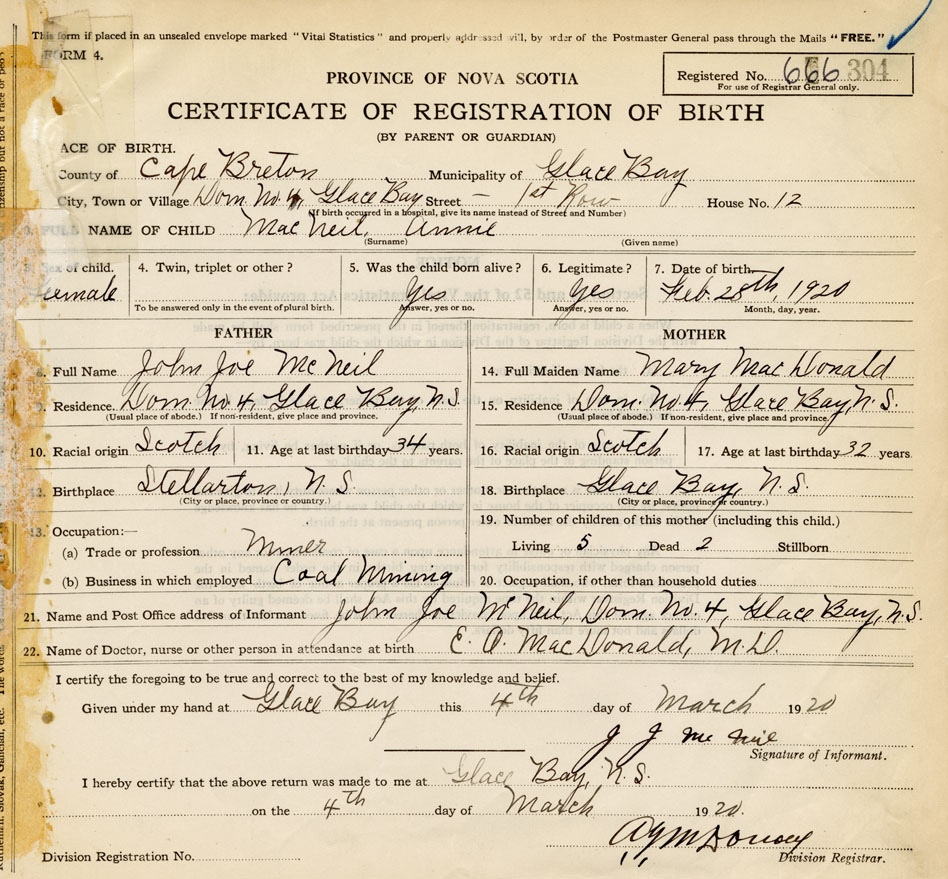 This form if placed in an unsealed envelope marked "Vital Statistics" and properly addressed will, by order of the Postmaster General pass through the Mails "FREE."
FORM 4.
PROVINCE OF NOVA SCOTIA
Registered No. 666 304
For use of Registrar General only.
CERTIFICATE OF REGISTRATION OF BIRTH
(BY PARENT OR GUARDIAN)
ACE OF BIRTH.
County of Cape Breton Municipality of Glace Bay
City, Town or Village Dom. No. 4, Glace Bay Street – 1st Row House No. 12
(If birth occurred in a hospital, give its name instead of Street and Number)
FULL NAME OF CHILD Mac Neil, Annie
(Surname) (Given name)
Sex of child. 4. Twin, triplet or other? 5. Was the child born alive? 6. Legitimate? 7. Date of birth
Female Yes Yes Feb. 28th, 1920
To be answered only in the event of plural birth. Answer, yes or no. Answer, yes or no. Month, day, year.
FATHER MOTHER
8. Full Name John Joe McNeil 14. Full Maiden Name Mary Mac Donald
9. Residence. Dom. No. 4, Glace Bay, N.S. 15. Residence Dom. No. 4, Glace Bay, N.S.
(Usual place of abode.) If non-resident, give place and province. (Usual place of abode.) If non-resident, give place and province.
10. Racial origin Scotch 11. Age at last birthday 34 years. 16. Racial origin Scotch 17. Age at last birthday 32 years.
12. Birthplace Stellarton, N.S. 18. Birthplace Glace Bay, N.S.
(City or place, province or country.) (City or place, province or country.)
13. Occupation:— 19. Number of children of this mother (including this child.)
(a) Trade or profession Miner Living 5 Dead 2 Stillborn
(b) Business in which employed Coal Mining 20. Occupation, if other than household duties
21. Name and Post Office address of Informant John Joe McNeil, Dom. No. 4, Glace Bay, N.S.
22. Name of Doctor, nurse or other person in attendance at birth E. O. MacDonald, M.D.
I certify the foregoing to be true and correct to the best of my knowledge and belief.
Given under my hand at Glace Bay this 4th day of March 1920
J J Mc Neil
Signature of Informant.
I hereby certify that the above return was made to me at Glace Bay, N.S.
on the 4th day of March 1920.
Division Registration No.
Division Registrar.